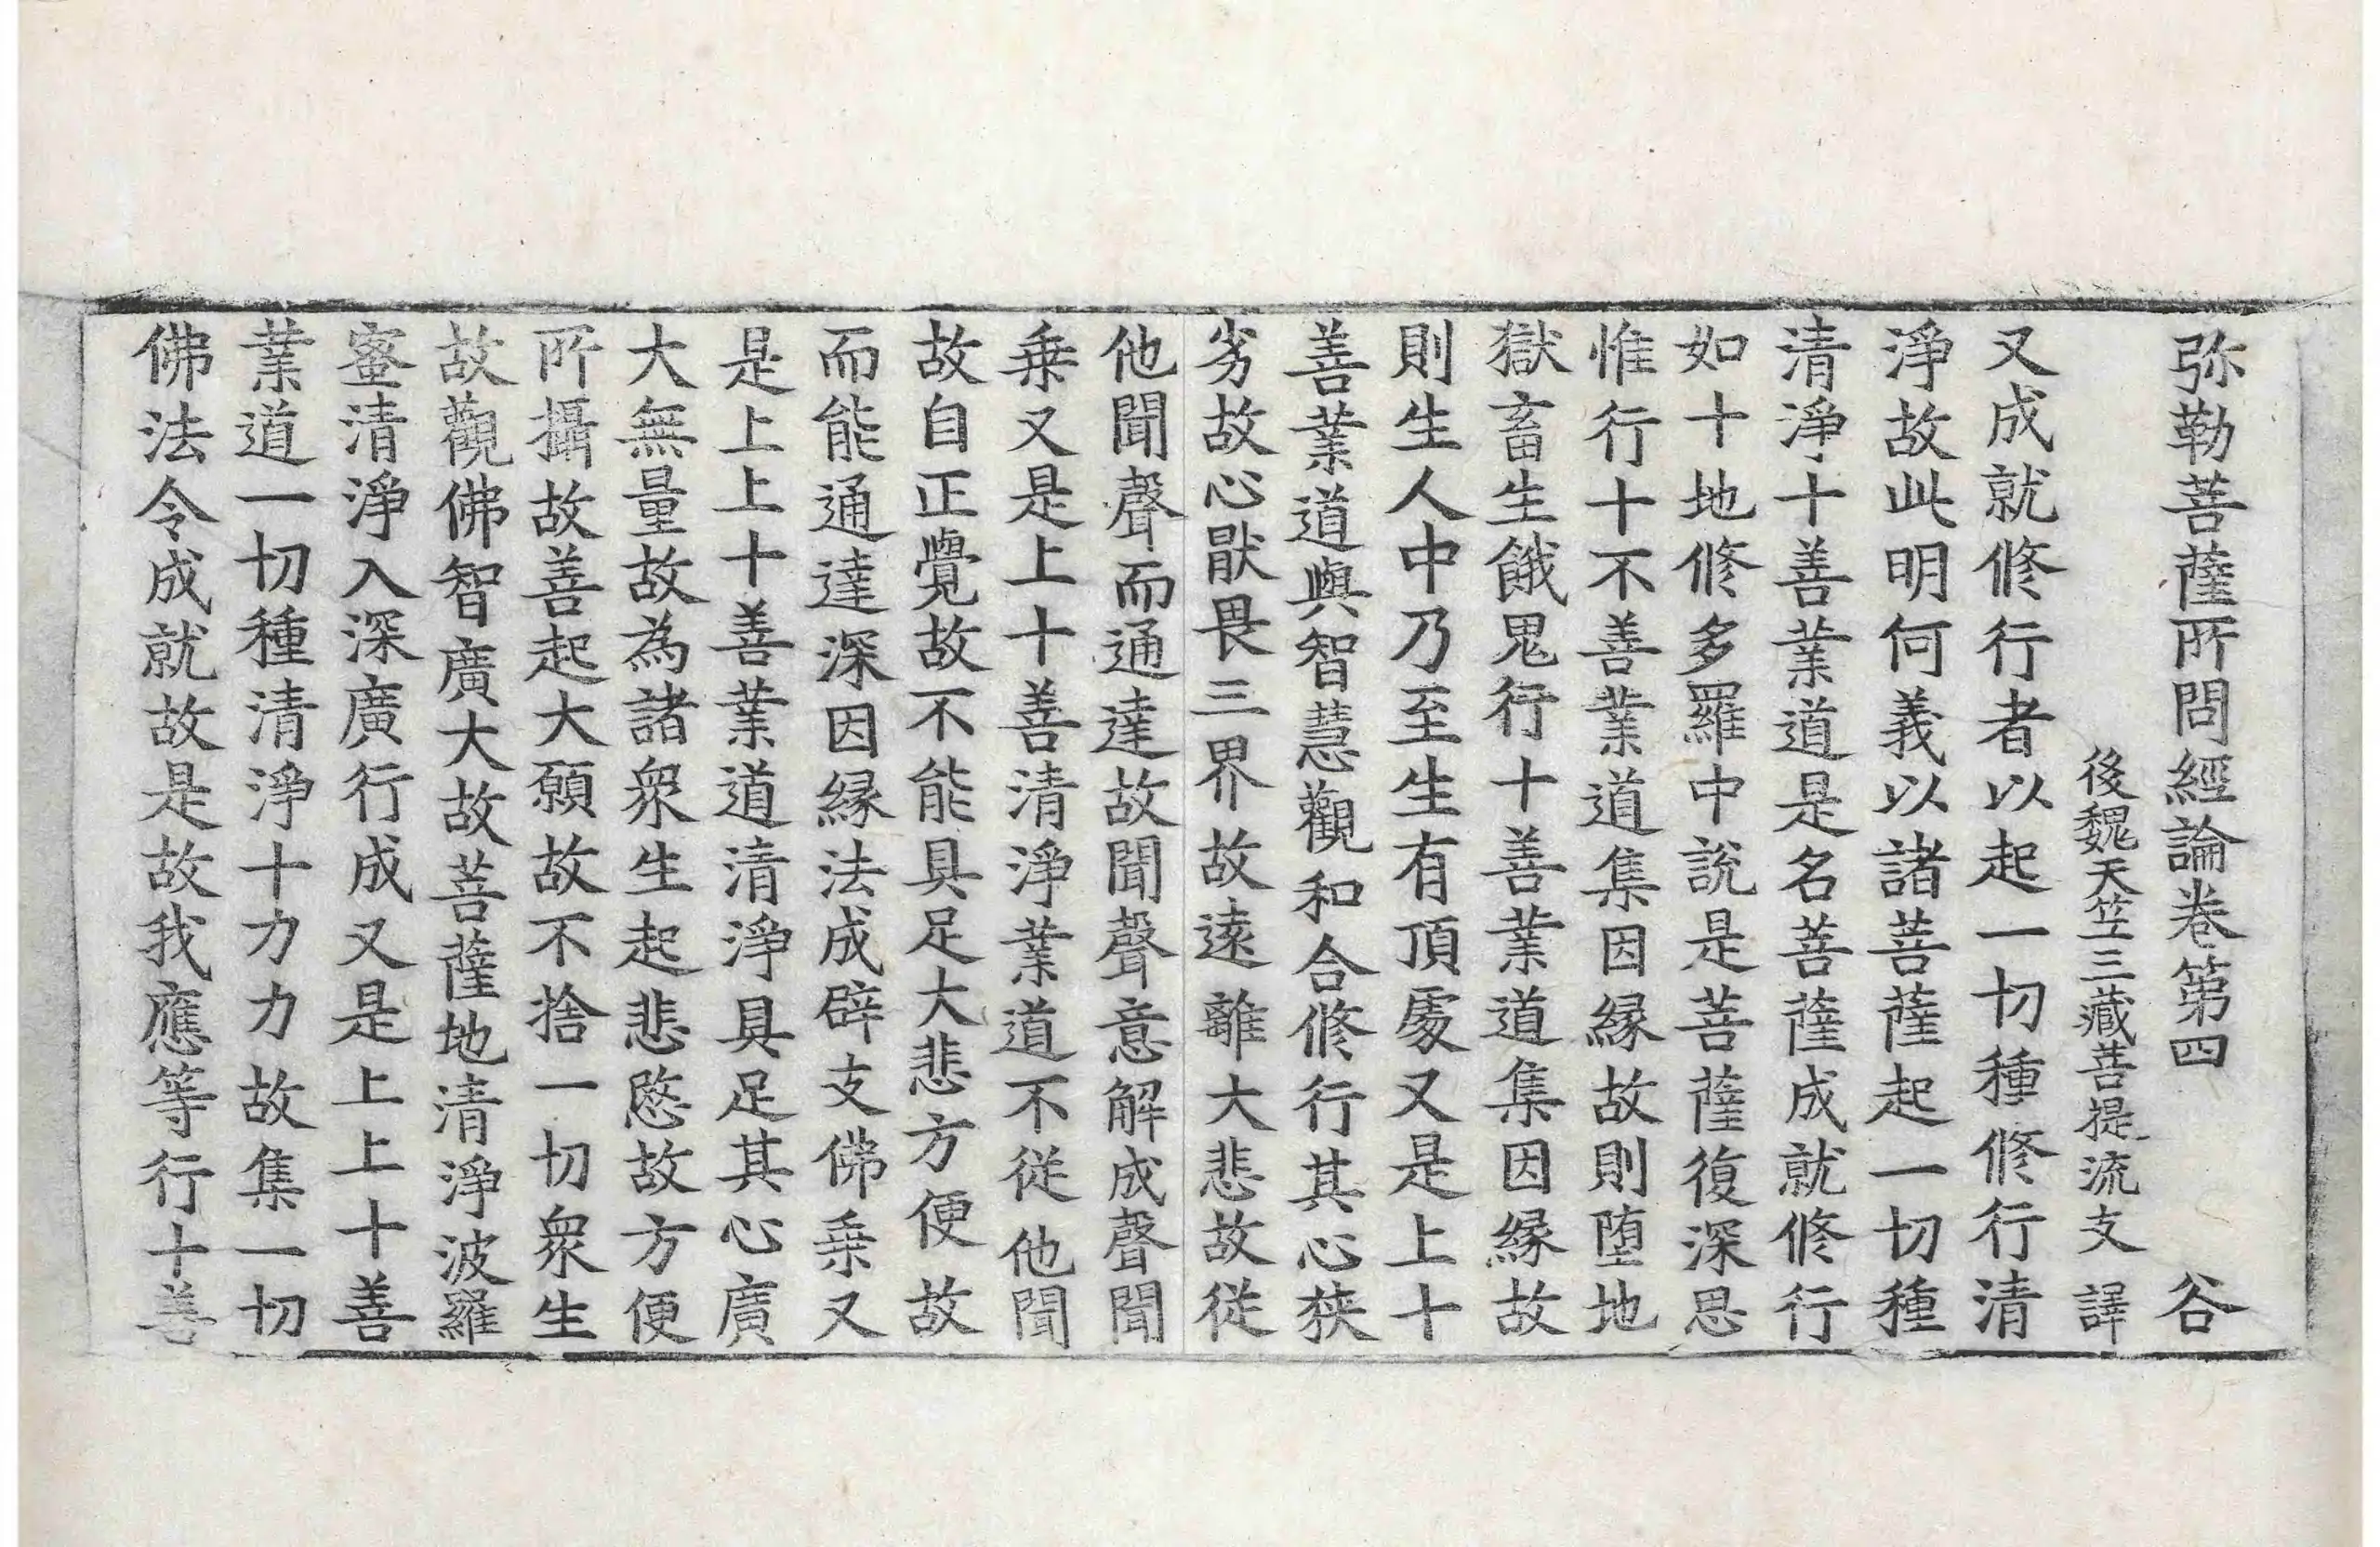 弥勒菩薩所問經論卷第四 谷
後魏天竺三藏菩提流支 譯
又成就修行者以起一切種修行清
淨故此明何義以諸菩薩起一切種
清淨十善業道是名菩薩成就修行
如十地修多羅中說是菩薩復深思
惟行十不善業道集因縁故則堕地
獄畜生餓鬼行十善業道集因縁故
則生人中乃至生有頂處又是上十
善業道與智慧觀和合修行其心狹
劣故心猒畏三界故遠離大悲故從
他聞聲而通達故聞聲意解成聲聞
乗又是上十善清淨業道不從他聞
故自正覺故不能具足大悲方便故
而能通達深因縁法成辟支佛乗又
是上上十善業道清淨具足其心廣
大無量故為諸衆生起悲愍故方便
所攝故善起大願故不捨一切衆生
故觀佛智廣大故菩薩地清淨波羅
蜜清淨入深廣行成又是上上十善
業道一切種清淨十力力故集一切
佛法令成就故是故我應等行十善